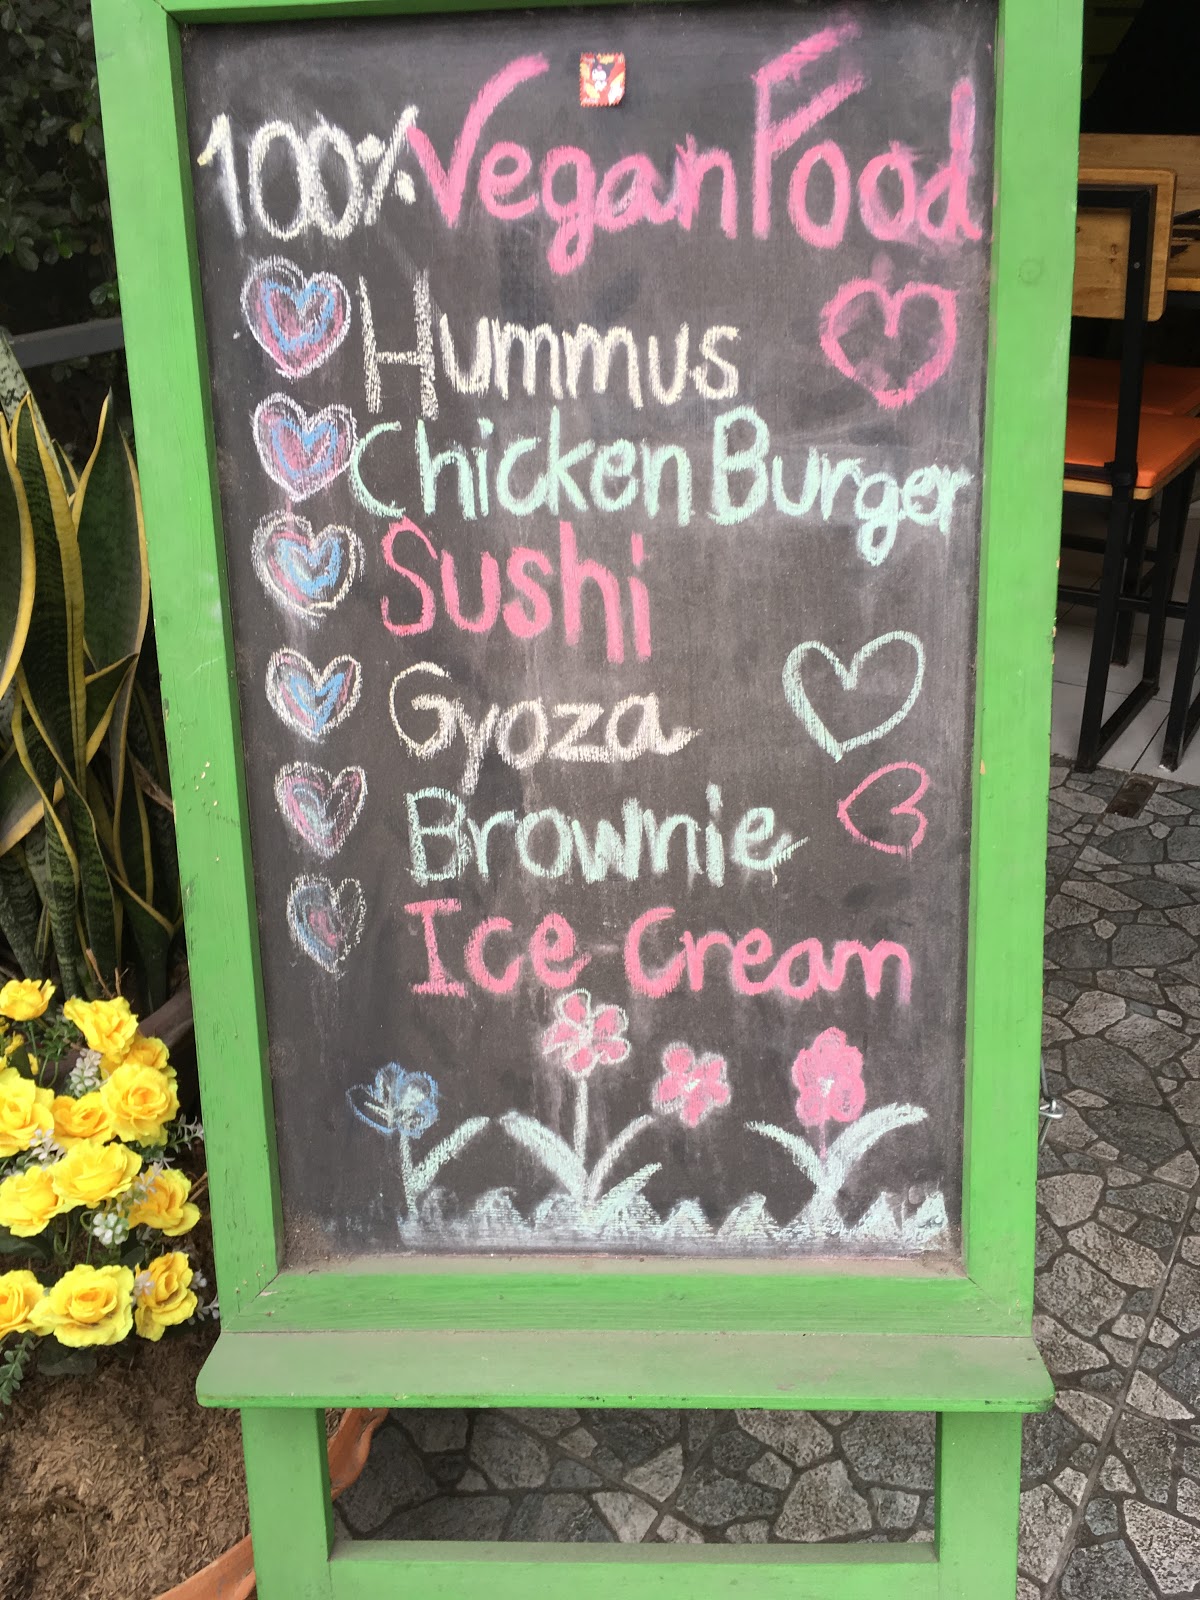 100% Vegan Food
Hummus
Chicken Burger
Sushi
Gyoza
Brownie
Ice Cream